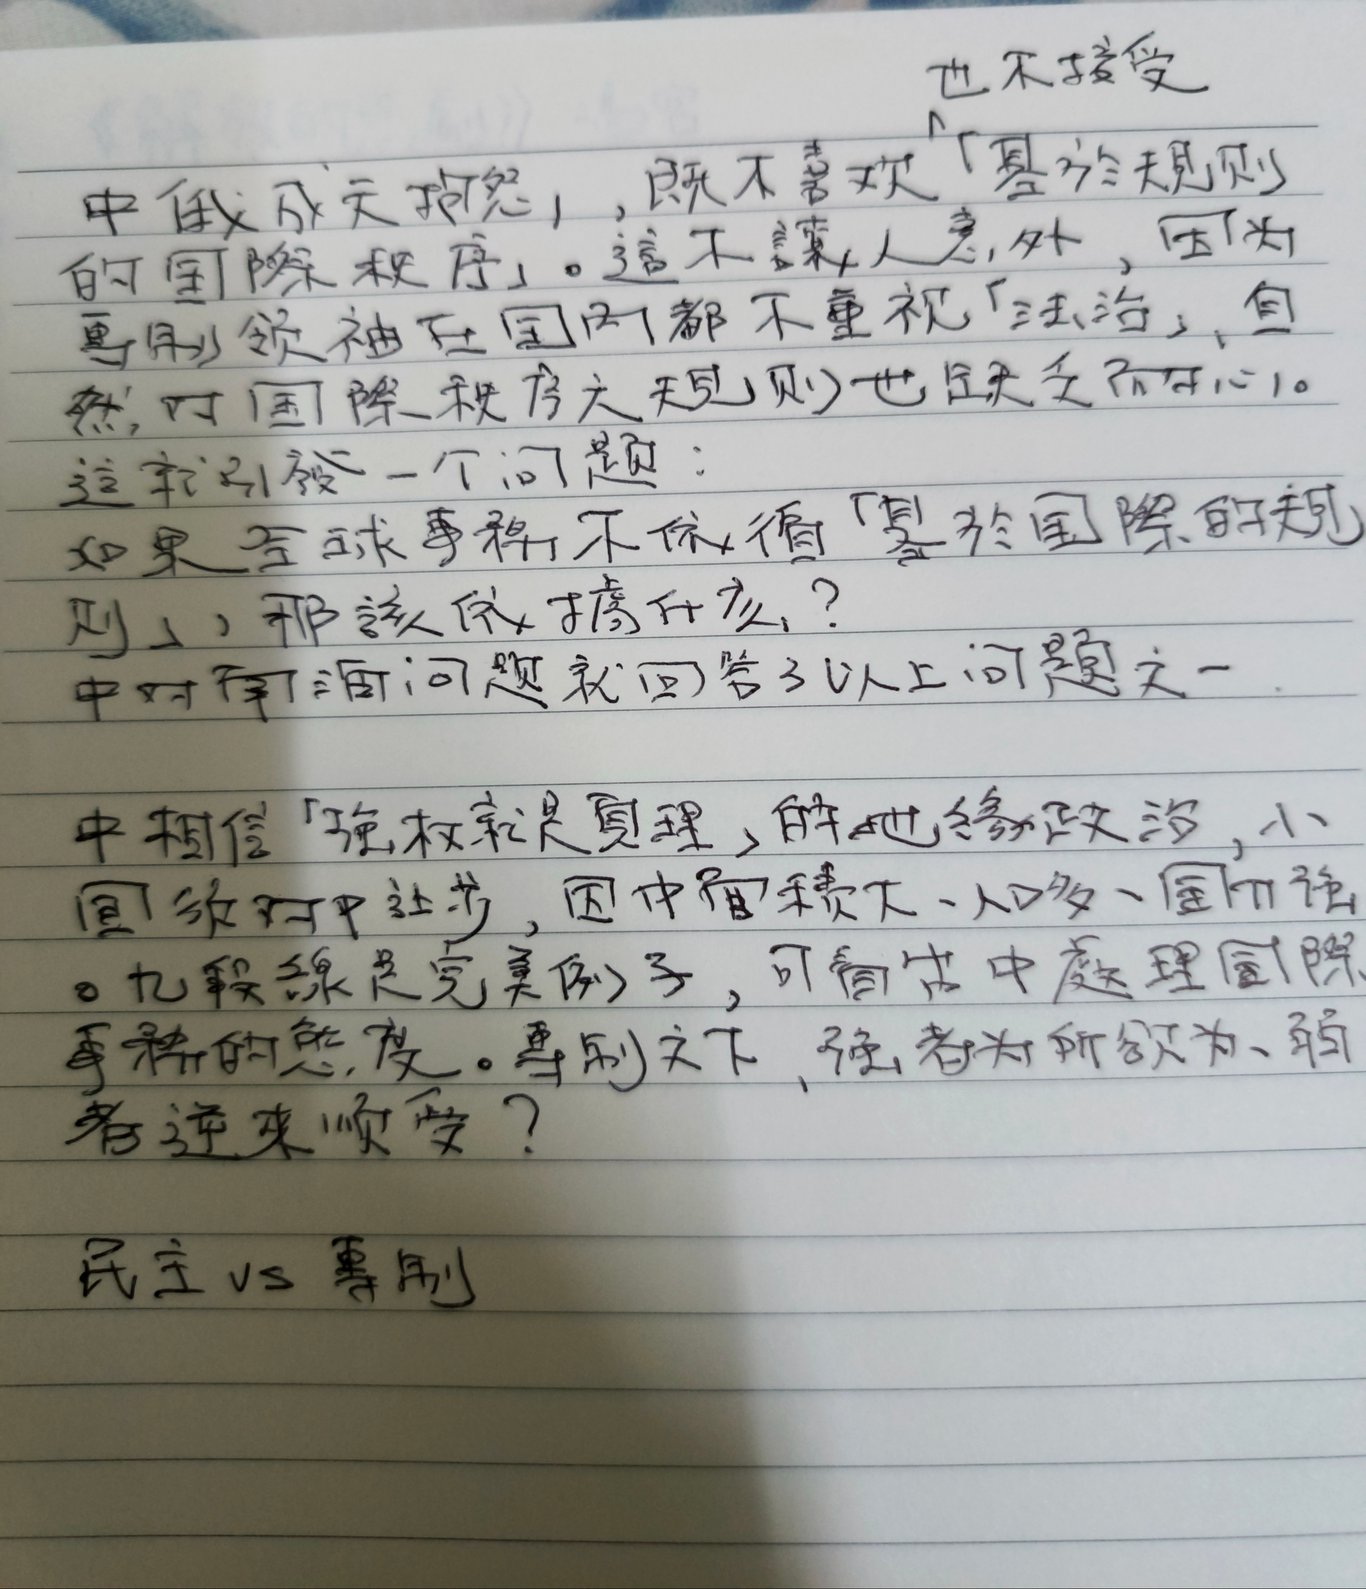 也不接受
中俄成天抱怨,,既不喜欢「基於規则
的国際秩序」。這不讓人意外,因为
專制领袖在国内都不重視「法治」,自
然,对国際秩序之規则也缺乏耐心。
這就引發一个问题:
如果全球事務不依循「基於国際的規
则」,那該依據什么?
中对南海问题就回答了以上问题之一
中相信「強权就是真理」的地緣政治,小
国须对中让步,因中面積大、人口多、国力強
。九段線是完美例子,可看出中處理国際
事務的態度。專制之下,強者为所欲为、弱
者逆來順受?
民主 vs 專制